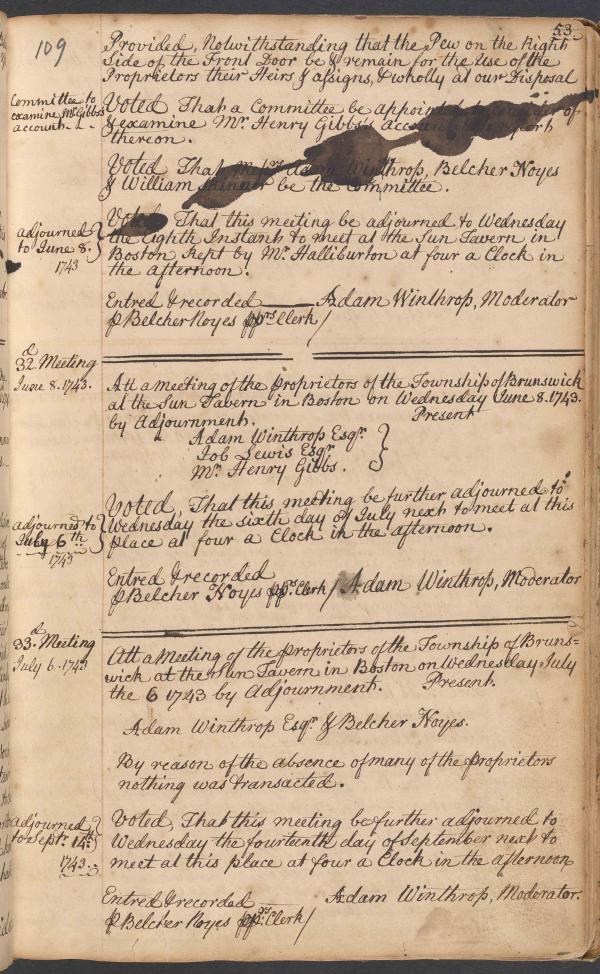 53
109
Provided, Notwithstanding that the Pew on the Right
Side of the Front Door be & remain for the Use of the
Proprietors their Heirs & assigns, & wholly at our Disposal
Committee to
examine Mr. Gibbs
account
Voted That a Committee be appointed to consider of
& examine Mr. Henry Gibbs's account & report
thereon.
Voted That Mess.rs Adam Winthrop, Belcher Noyes
& William Skinner be the Committee.
adjourned
to June 8.
1743
Voted That this meeting be adjourned to Wednesday
the Eighth Instant to meet at the Sun Tavern in
Boston Kept by Mr. Halliburton at four a Clock in
the afternoon.
Entred & recorded Adam Winthrop, Moderator
p Belcher Noyes pprs Clerk/
32.d Meeting
June 8. 1743.
Att a meeting of the proprietors of the Township of Brunswick
at the Sun Tavern in Boston on Wednesday June 8. 1743.
by Adjournment. Present
Adam Winthrop Esqr.
Job Lewis Esqr.
Mr. Henry Gibbs.
adjourned to
July 6th
1743
Voted, That this meeting be further adjourned to
Wednesday the sixth day of July next to meet at this
place at four a Clock in the afternoon.
Entred & recorded
p Belcher Noyes pprs Clerk/ Adam Winthrop, Moderator
33.d Meeting
July 6. 1743
Att a Meeting of the proprietors of the Township of Bruns=
wick at the Sun Tavern in Boston on Wednesday July
the 6 1743 by Adjournment. Present.
Adam Winthrop Esqr. & Belcher Noyes.
By reason of the absence of many of the proprietors
nothing was transacted.
adjourned
to Sept. 14th
1743.
Voted, That this meeting be further adjourned to
Wednesday the fourteenth day of September next to
meet at this place at four a Clock in the afternoon
Entred & recorded Adam Winthrop, Moderator.
p Belcher Noyes pprs Clerk/